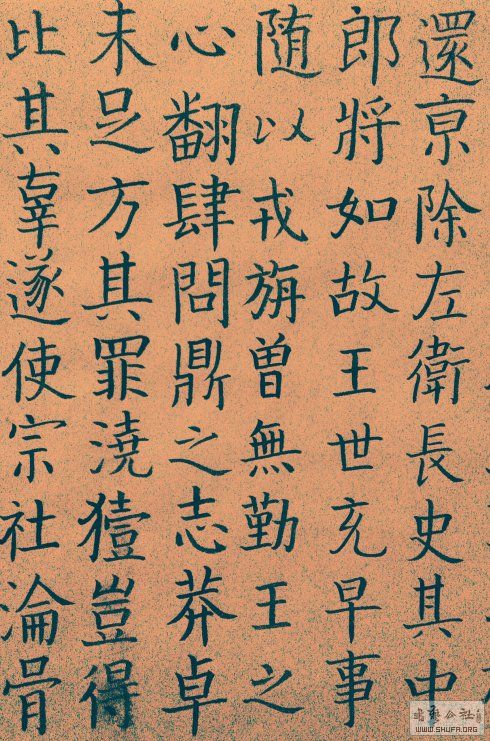 還亰除左衛長史其中
郎將如故王世充早事
随以戎旃曽無勤王之
心翻肆問鼎之志莽卓
未足方其罪澆豈得
比其辜遂使宗社淪胥
WWW.SHUFA.ORG